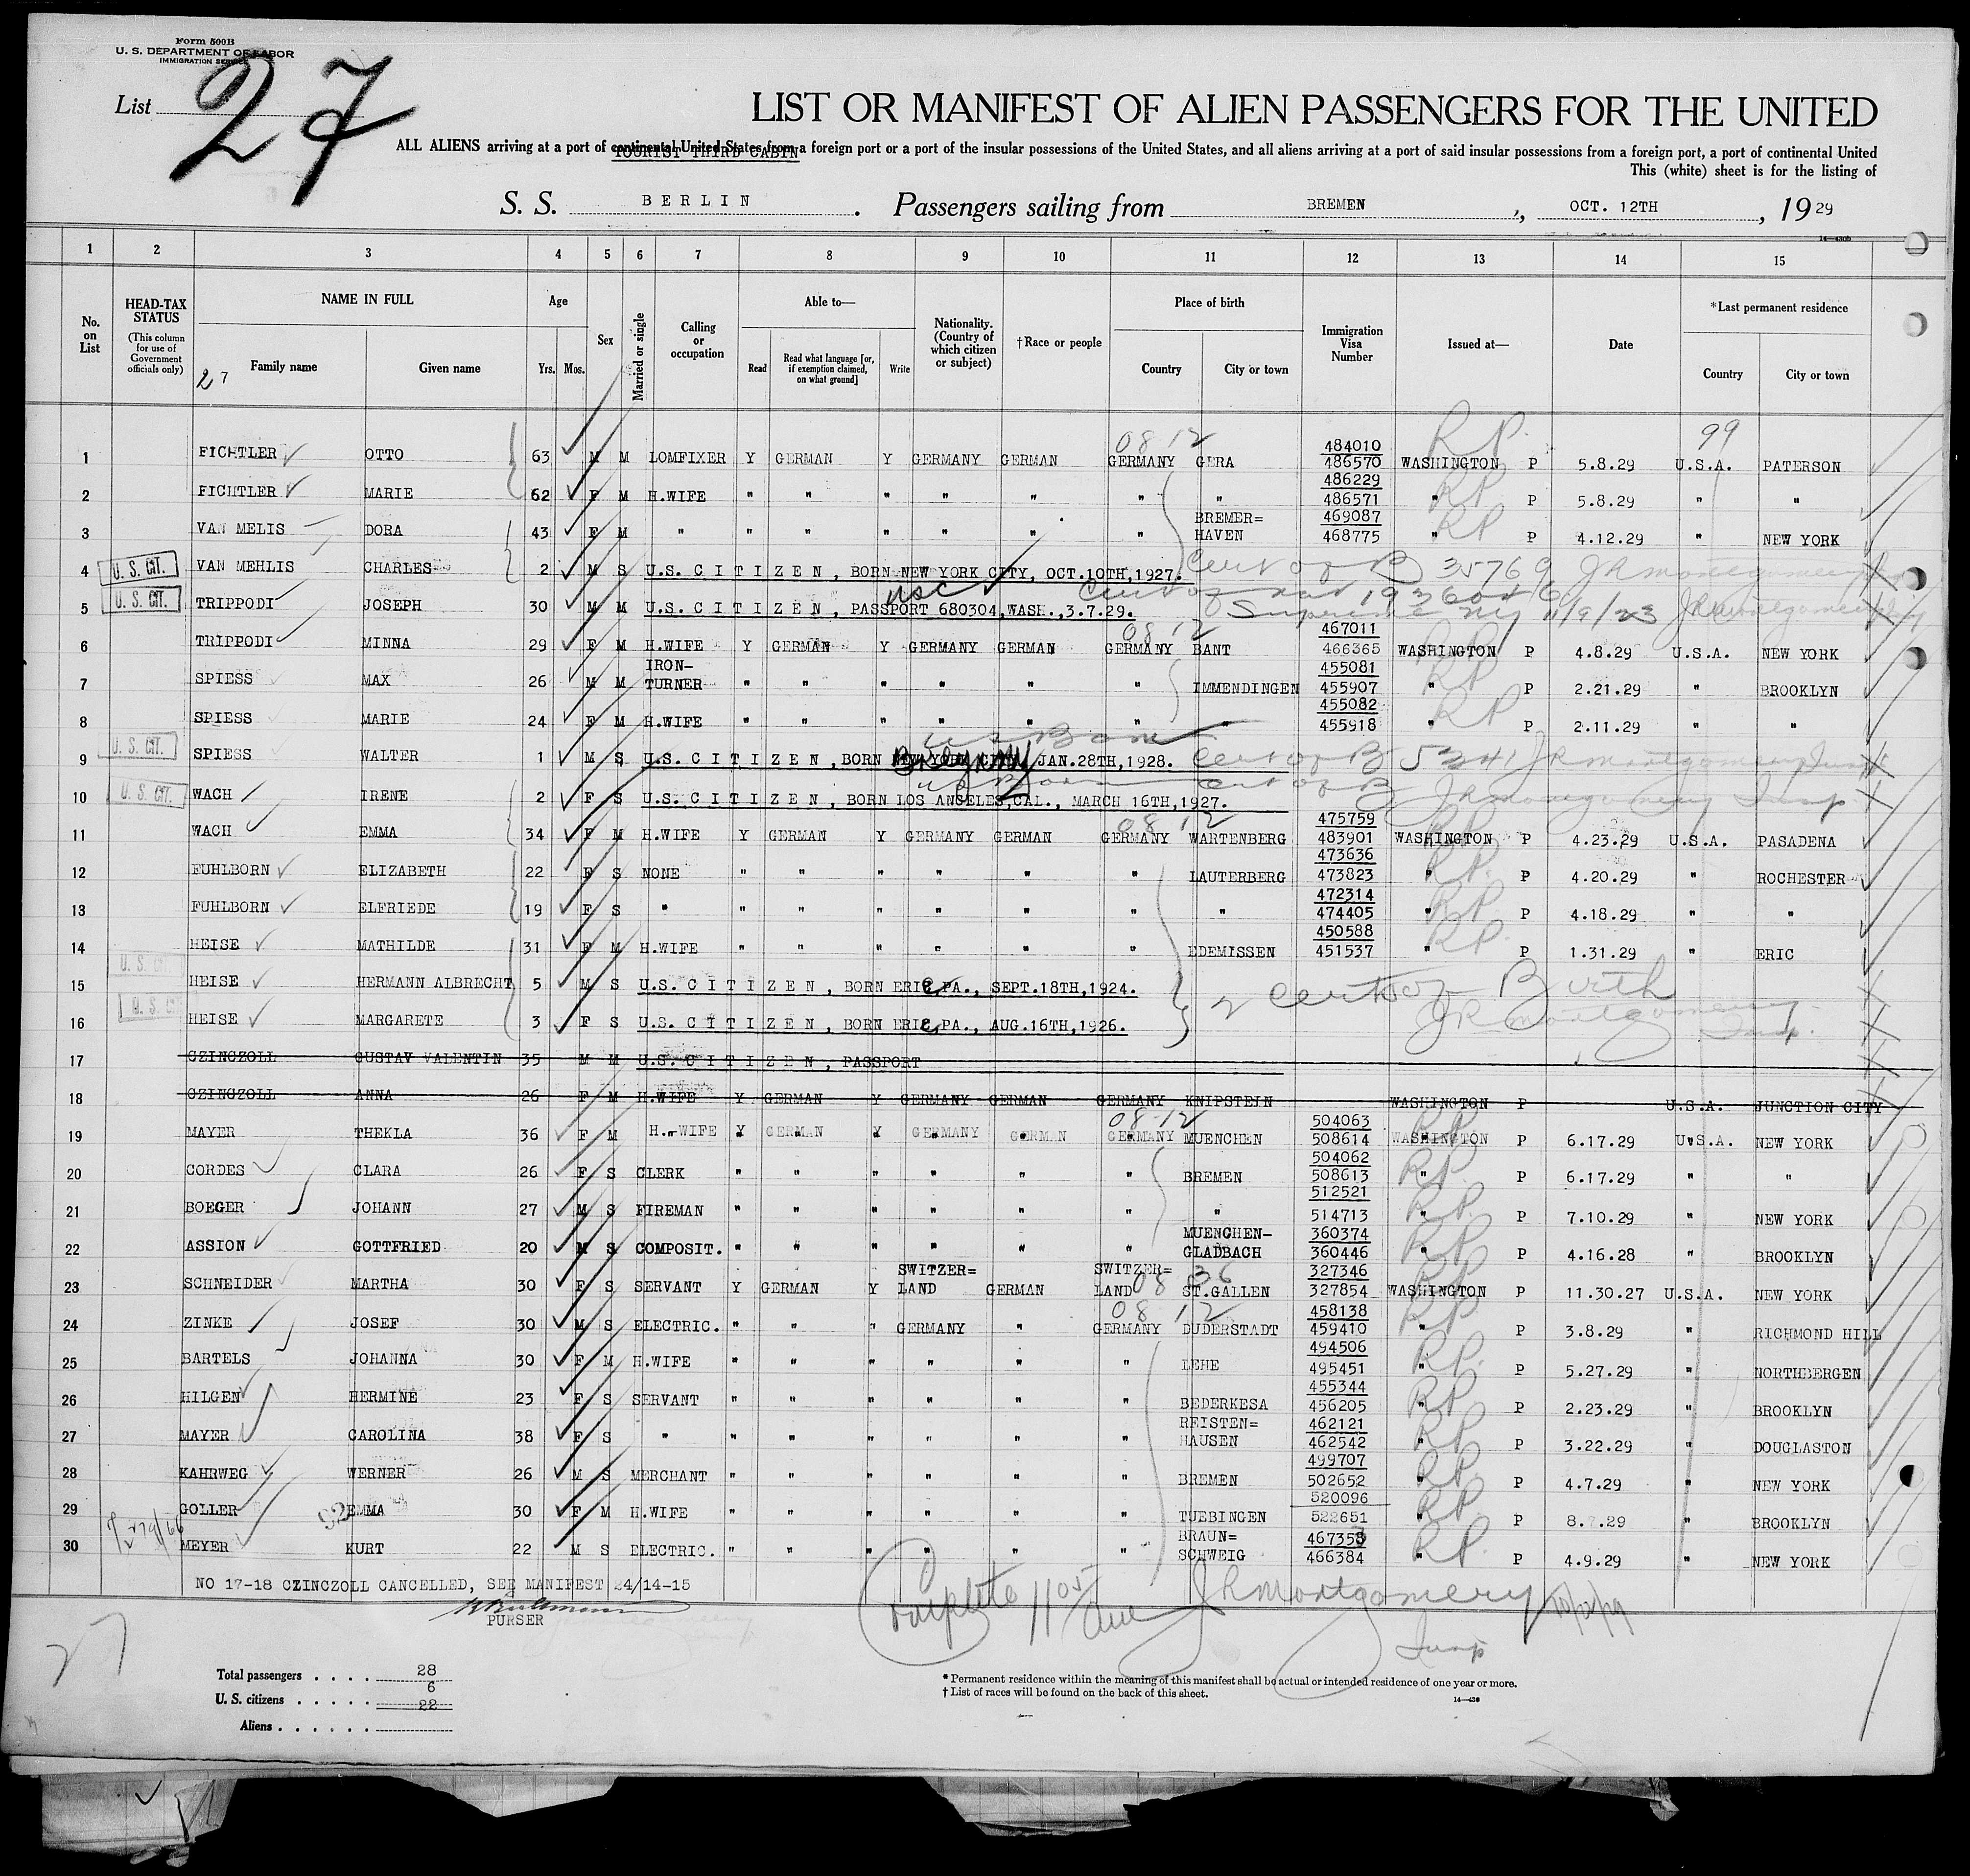 Form 500B
U. S. DEPARTMENT OF LABOR
IMMIGRATION SERVICE
List 27
LIST OR MANIFEST OF ALIEN PASSENGERS FOR THE UNITED
ALL ALIENS arriving at a port of continental United States from a foreign port or a port of the insular possessions of the United States, and all aliens arriving at a port of said insular possessions from a foreign port, a port of continental United
TOURIST THIRD CABIN
This (white) sheet is for the listing of
S. S. BERLIN. Passengers sailing from BREMEN, OCT. 12TH, 1929
14—430b
1 2 3 4 5 6 7 8 9 10 11 12 13 14 15
No. on List
HEAD-TAX STATUS (This column for use of Government officials only)
NAME IN FULL Family name Given name
27
Age Yrs. Mos.
Sex
Married or single
Calling or occupation
Able to— Read Read what language [or, if exemption claimed, on what ground] Write
Nationality. (Country of which citizen or subject)
†Race or people
Place of birth Country City or town
Immigration Visa Number
Issued at—
Date
*Last permanent residence Country City or town
08 12 99
1 FICHTLER OTTO 63 M M LOMFIXER Y GERMAN Y GERMANY GERMAN GERMANY GERA 484010 486570 WASHINGTON P RP 5.8.29 U.S.A. PATERSON
2 FICHTLER MARIE 62 F M H.WIFE " " " " " " " 486229 486571 " P RP 5.8.29 " "
3 VAN MELIS DORA 43 F M " " " " " " " BREMER=HAVEN 469087 468775 " P RP 4.12.29 " NEW YORK
4 U.S. CIT. VAN MEHLIS CHARLES 2 M S U.S. CITIZEN, BORN NEW YORK CITY, OCT.10TH,1927. Cert of B 35769 JRMontgomery
5 U.S. CIT. TRIPPODI JOSEPH 30 M M U.S. CITIZEN, PASSPORT 680304,WASH.,3.7.29. USC Cert of Nat Supreme NY 11/9/23 JRMontgomery
08 12
6 TRIPPODI MINNA 29 F M H.WIFE Y GERMAN Y GERMANY GERMAN GERMANY BANT 467011 466365 WASHINGTON P RP 4.8.29 U.S.A. NEW YORK
7 SPIESS MAX 26 M M IRON-TURNER " " " " " " IMMENDINGEN 455081 455907 " P RP 2.21.29 " BROOKLYN
8 SPIESS MARIE 24 F M H.WIFE " " " " " " " 455082 455918 " P RP 2.11.29 " "
US Born
9 U.S. CIT. SPIESS WALTER 1 M S U.S. CITIZEN, BORN NEW YORK CITY, JAN.28TH,1928. Cert of B 5341 JRMontgomery Insp
10 U.S. CIT. WACH IRENE 2 F S U.S. CITIZEN, BORN LOS ANGELES,CAL., MARCH 16TH,1927. US Born Cert of B JRMontgomery Insp.
08 12
11 WACH EMMA 34 F M H.WIFE Y GERMAN Y GERMANY GERMAN GERMANY WARTENBERG 475759 483901 WASHINGTON P RP 4.23.29 U.S.A. PASADENA
12 FUHLBORN ELIZABETH 22 F S NONE " " " " " " LAUTERBERG 473636 473823 " P RP 4.20.29 " ROCHESTER
13 FUHLBORN ELFRIEDE 19 F S " " " " " " " " 472314 474405 " P RP 4.18.29 " "
14 HEISE MATHILDE 31 F M H.WIFE " " " " " " EDEMISSEN 450588 451537 " P RP 1.31.29 " ERIC
15 U.S. CIT. HEISE HERMANN ALBRECHT 5 M S U.S. CITIZEN, BORN ERIE,PA., SEPT.18TH,1924.
2 Certs of Birth JRMontgomery Insp.
16 U.S. CIT. HEISE MARGARETE 3 F S U.S. CITIZEN, BORN ERIE,PA., AUG.16TH,1926.
17 CZINCZOLL GUSTAV VALENTIN 35 M M U.S. CITIZEN, PASSPORT
18 CZINCZOLL ANNA 26 F M H.WIFE Y GERMAN Y GERMANY GERMAN GERMANY KNIPSTEIN WASHINGTON P U.S.A. JUNCTION CITY
08-12
19 MAYER THEKLA 36 F M H.WIFE Y GERMAN Y GERMANY GERMAN GERMANY MUENCHEN 504063 508614 WASHINGTON P RP 6.17.29 U.S.A. NEW YORK
20 CORDES CLARA 26 F S CLERK " " " " " " BREMEN 504062 508613 " P RP 6.17.29 " "
21 BOEGER JOHANN 27 M S FIREMAN " " " " " " " 512521 514713 " P RP 7.10.29 " NEW YORK
22 ASSION GOTTFRIED 20 M S COMPOSIT. " " " " " " MUENCHEN-GLADBACH 360374 360446 " P RP 4.16.28 " BROOKLYN
23 SCHNEIDER MARTHA 30 F S SERVANT Y GERMAN Y SWITZER=LAND GERMAN SWITZER=LAND 08 36 ST.GALLEN 327346 327854 WASHINGTON P RP 11.30.27 U.S.A. NEW YORK
08 12
24 ZINKE JOSEF 30 M S ELECTRIC. " " " GERMANY " GERMANY DUDERSTADT 458138 459410 " P RP 3.8.29 " RICHMOND HILL
25 BARTELS JOHANNA 30 F M H.WIFE " " " " " " LEHE 494506 495451 " P RP 5.27.29 " NORTHBERGEN
26 HILGEN HERMINE 23 F S SERVANT " " " " " " BEDERKESA 455344 456205 " P RP 2.23.29 " BROOKLYN
27 MAYER CAROLINA 38 F S " " " " " " " REISTEN=HAUSEN 462121 462542 " P RP 3.22.29 " DOUGLASTON
28 KAHRWEG WERNER 26 M S MERCHANT " " " " " " BREMEN 499707 502652 " P RP 4.7.29 " NEW YORK
29 GOLLER EMMA 30 F M H.WIFE " " " " " " TUEBINGEN 520096 522651 " P RP 8. .29 " BROOKLYN
30 MEYER KURT 22 M S ELECTRIC. " " " " " " BRAUN=SCHWEIG 467353 466384 " P RP 4.9.29 " NEW YORK
NO 17-18 CZINCZOLL CANCELLED, SEE MANIFEST 24/14-15
PURSER
Complete 11 05 am JRMontgomery Insp
27
Total passengers . . . . 28
U. S. citizens . . . . . 6
Aliens . . . . . . 22
* Permanent residence within the meaning of this manifest shall be actual or intended residence of one year or more.
† List of races will be found on the back of this sheet.
14—430